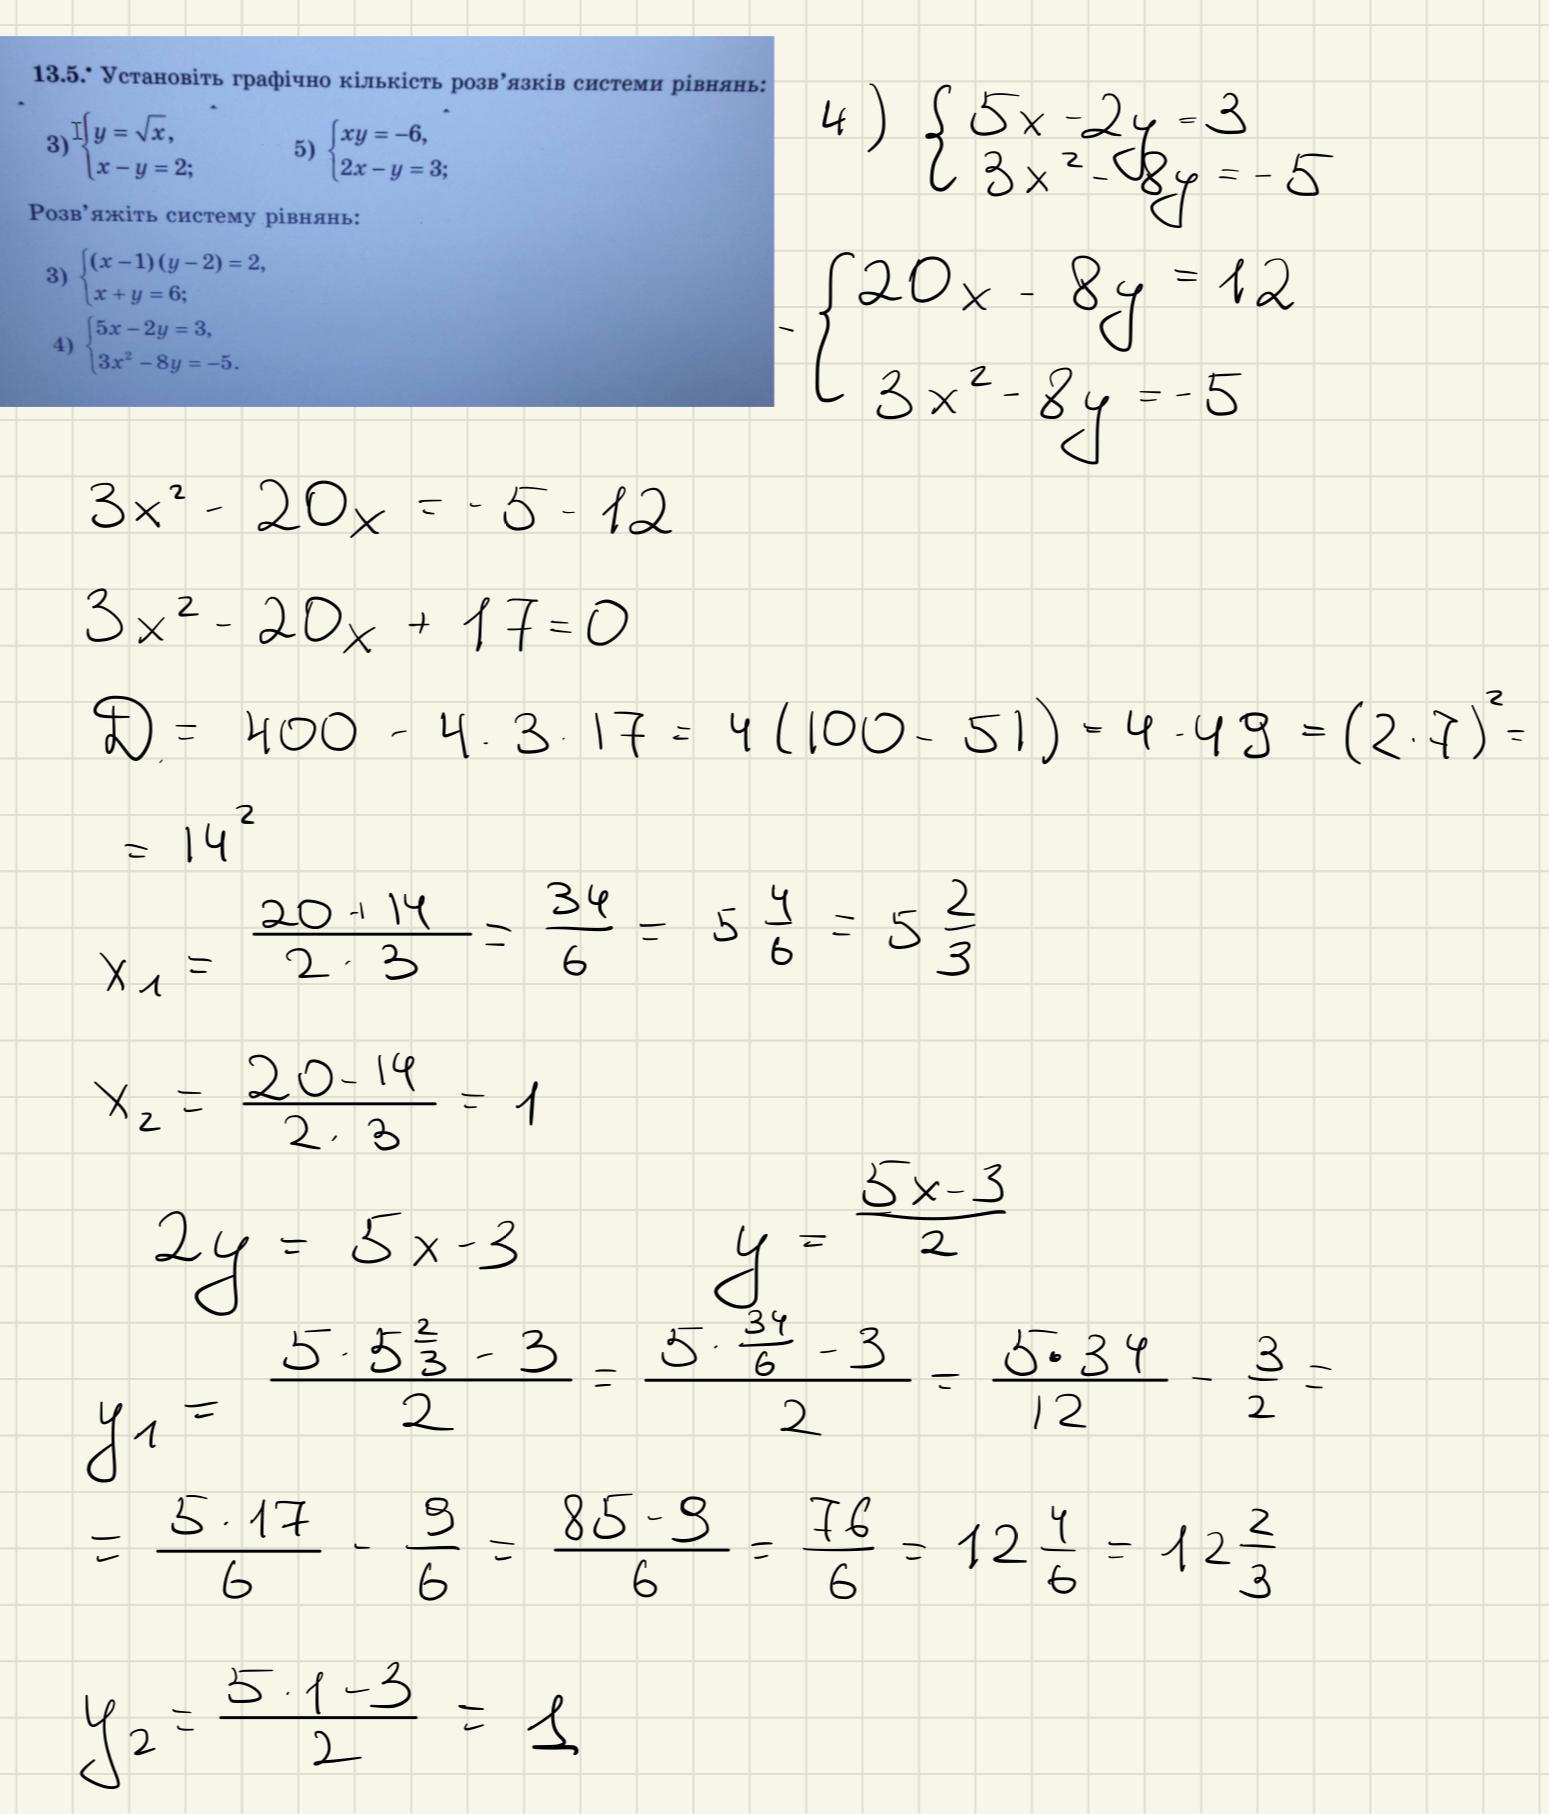 13.5.• Установіть графічно кількість розв'язків системи рівнянь:
3) { y = √x,
x – y = 2;
5) { xy = –6,
2x – y = 3;
Розв'яжіть систему рівнянь:
3) { (x – 1)(y – 2) = 2,
x + y = 6;
4) { 5x – 2y = 3,
3x² – 8y = –5.
4) { 5x - 2y = 3
3x² - 8y = -5
- { 20x - 8y = 12
3x² - 8y = -5
3x² - 20x = -5 - 12
3x² - 20x + 17 = 0
D = 400 - 4 · 3 · 17 = 4(100 - 51) = 4 · 49 = (2 · 7)² =
= 14²
x₁ = (20 + 14)/(2 · 3) = 34/6 = 5 4/6 = 5 2/3
x₂ = (20 - 14)/(2 · 3) = 1
2y = 5x - 3 y = (5x - 3)/2
y₁ = (5 · 5 2/3 - 3)/2 = (5 · 34/6 - 3)/2 = (5 · 34)/12 - 3/2 =
= (5 · 17)/6 - 9/6 = (85 - 9)/6 = 76/6 = 12 4/6 = 12 2/3
y₂ = (5 · 1 - 3)/2 = 1